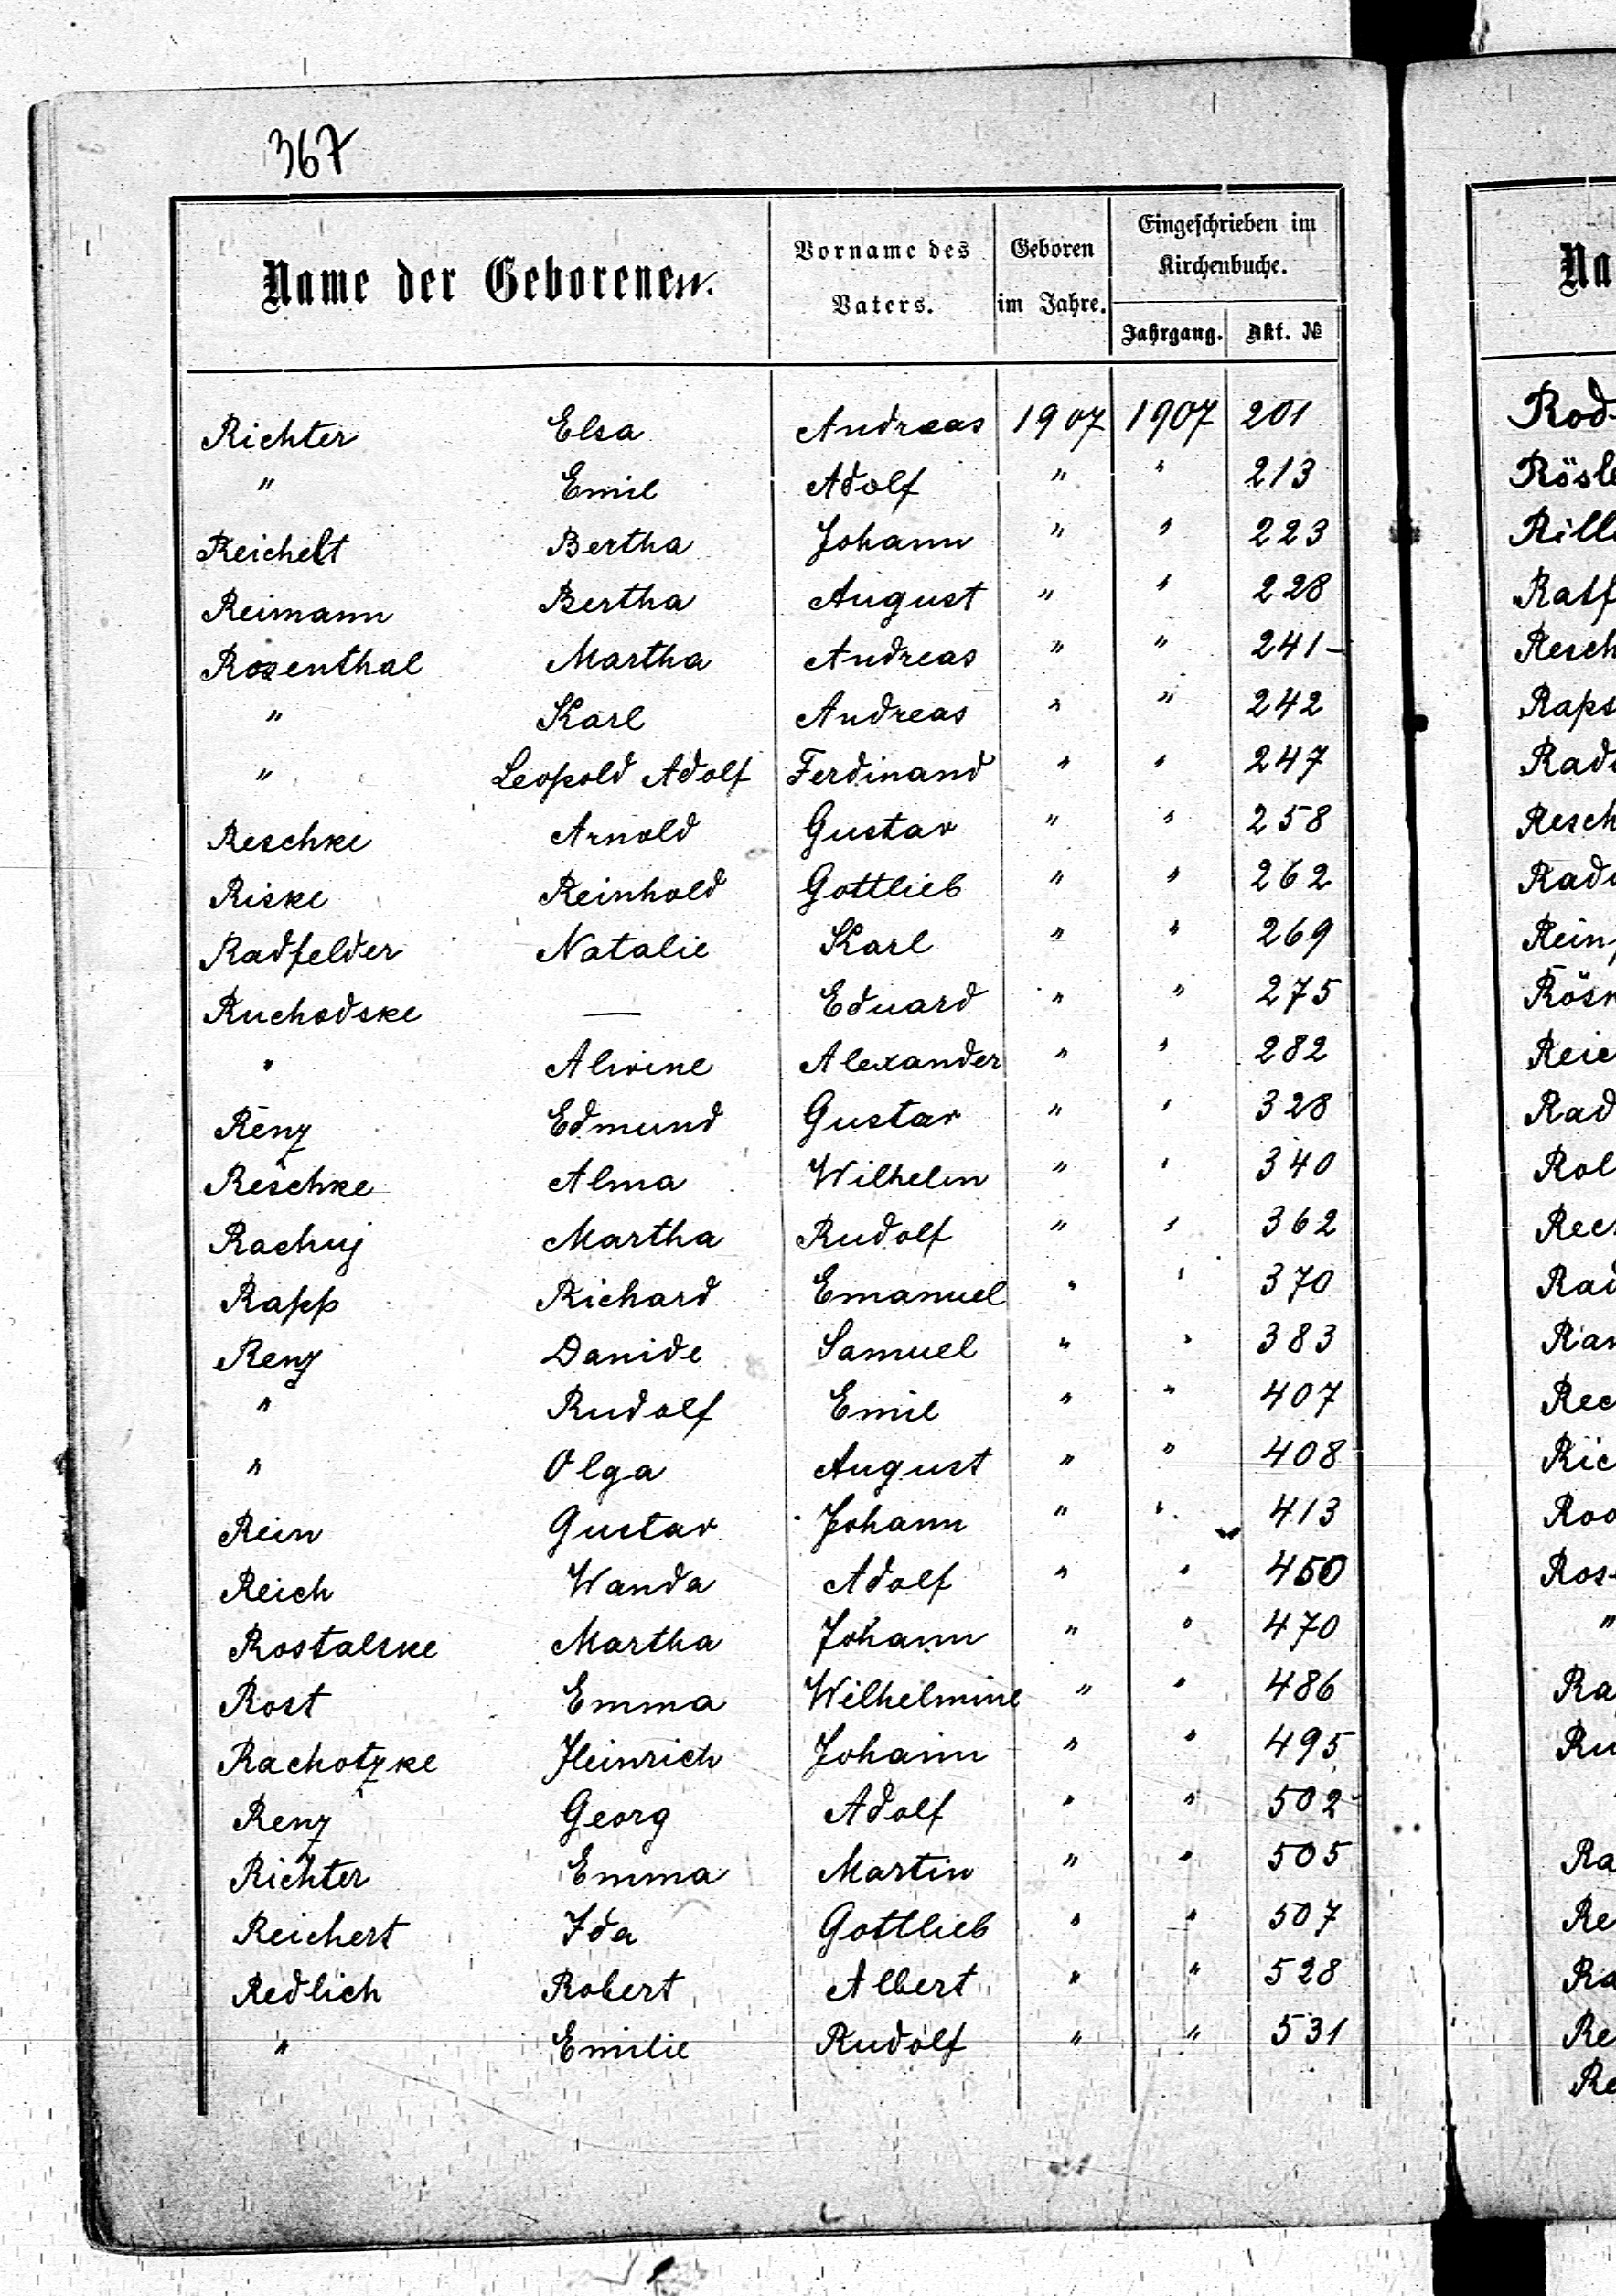 367
Name der Geborenen.
Vorname des Vaters.
Geboren im Jahre.
Eingeschrieben im Kirchenbuche.
Jahrgang. Akt. №
Richter Elsa Andreas 1907 1907 201
" Emil Adolf " " 213
Reichelt Bertha Johann " " 223
Reimann Bertha August " " 228
Rosenthal Martha Andreas " " 241-
" Karl Andreas " " 242
" Leopold Adolf Ferdinand " " 247
Reschke Arnold Gustav " " 258
Riske Reinhold Gottlieb " " 262
Radfelder Natalie Karl " " 269
Ruchodske — Eduard " " 275
" Alwine Alexander " " 282
Renz Edmund Gustav " " 328
Reschke Alma Wilhelm " " 340
Rachuj Martha Rudolf " " 362
Rapp Richard Emanuel " " 370
Renz Danide Samuel " " 383
" Rudolf Emil " " 407
" Olga August " " 408
Rein Gustav Johann " " 413
Reich Wanda Adolf " " 450
Rostalske Martha Johann " " 470
Rost Emma Wilhelmine " " 486
Rachotzke Heinrich Johann " " 495
Renz Georg Adolf " " 502
Richter Emma Martin " " 505
Reichert Ida Gottlieb " " 507
Redlich Robert Albert " " 528
" Emilie Rudolf " " 531
Na
Rod
Rösle
Rill
Ratf
Resch
Raps
Rad
Resch
Rad
Rein
Rösn
Reic
Rad
Rol
Rec
Rad
Ran
Rec
Ric
Roo
Ros
"
Ra
Ru
Ra
Re
Ra
Re
Re